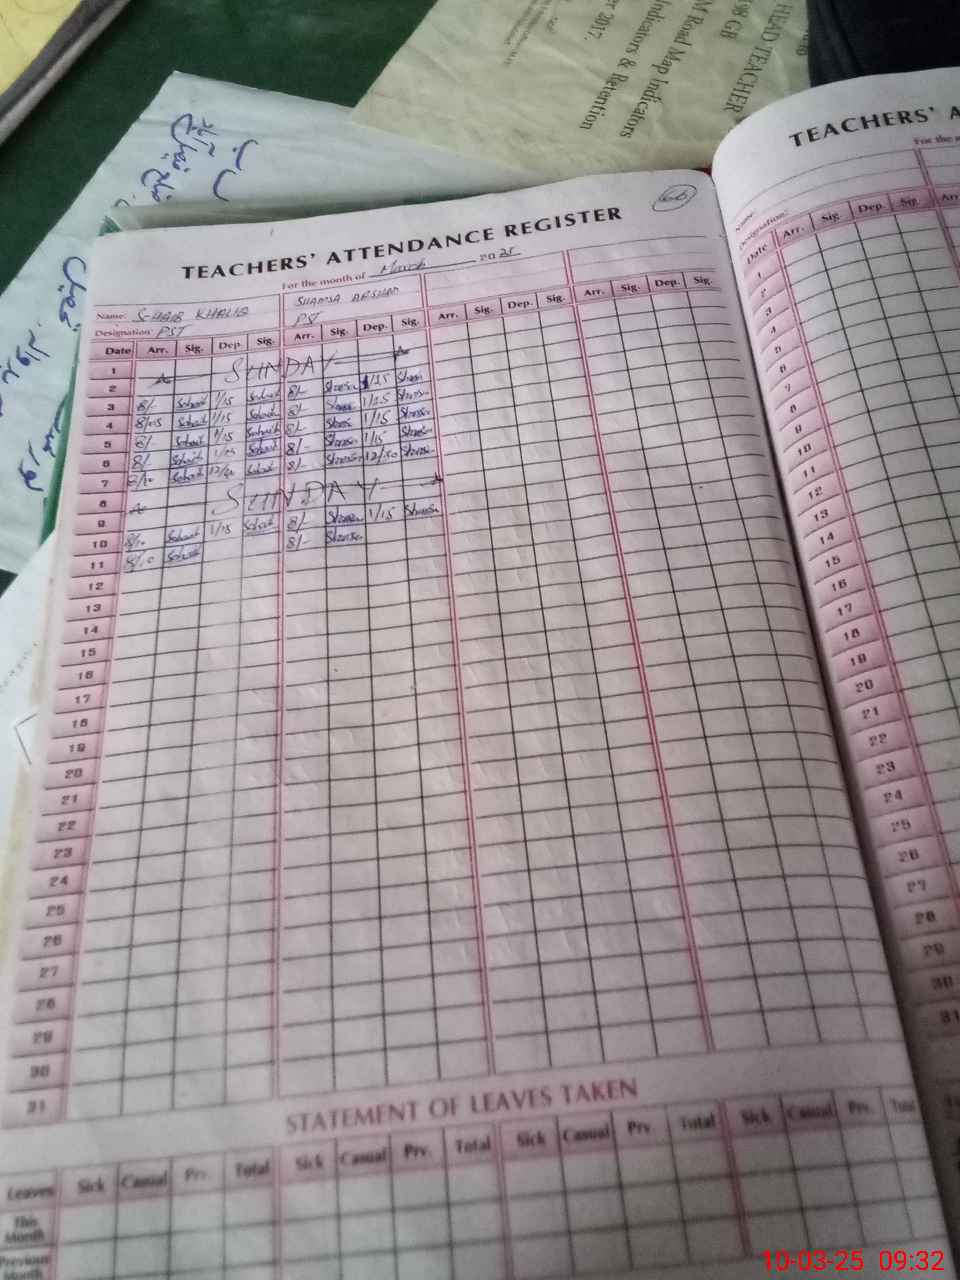 HEAD TEACHER
98 GB
M Road Map Indicators
Indicators & Retention
2017.
TEACHERS' ATTENDANCE REGISTER
For the month of March 2025
Name: SOHAIB KHALIQ SHAMSA ARSHAD
Designation: PST PST
Date Arr. Sig. Dep. Sig. Arr. Sig. Dep. Sig. Arr. Sig. Dep. Sig. Arr. Sig. Dep. Sig.
1
2 SUNDAY
3 8/- Sohaib 1/15 Sohaib 8/- Shamsa 1/15 Shamsa
4 8/05 Sohaib 1/15 Sohaib 8/- Shamsa 1/15 Shamsa
5 8/- Sohaib 1/15 Sohaib 8/- Shamsa 1/15 Shamsa
6 8/- Sohaib 1/15 Sohaib 8/- Shamsa 1/15 Shamsa
7 8/10 Sohaib Sohaib 8/- Shamsa 12/30 Shamsa
8
9 SUNDAY
10 8/10 Sohaib 1/15 Sohaib 8/- Shamsa 1/15 Shamsa
11 8/10 Sohaib 8/- Shamsa
12
13
14
15
16
17
18
19
20
21
22
23
24
25
26
27
28
29
30
31
STATEMENT OF LEAVES TAKEN
Leaves Sick Casual Prv. Total Sick Casual Prv. Total Sick Casual Prv. Total Sick Casual Prv. Total
This Month
Previous Month
TEACHERS' A
For the
Name:
Designation:
Date Arr. Sig. Dep. Sig. Arr
1
2
3
4
5
6
7
8
9
10
11
12
13
14
15
16
17
18
19
20
21
22
23
24
25
26
27
28
29
30
31
10-03-25 09:32